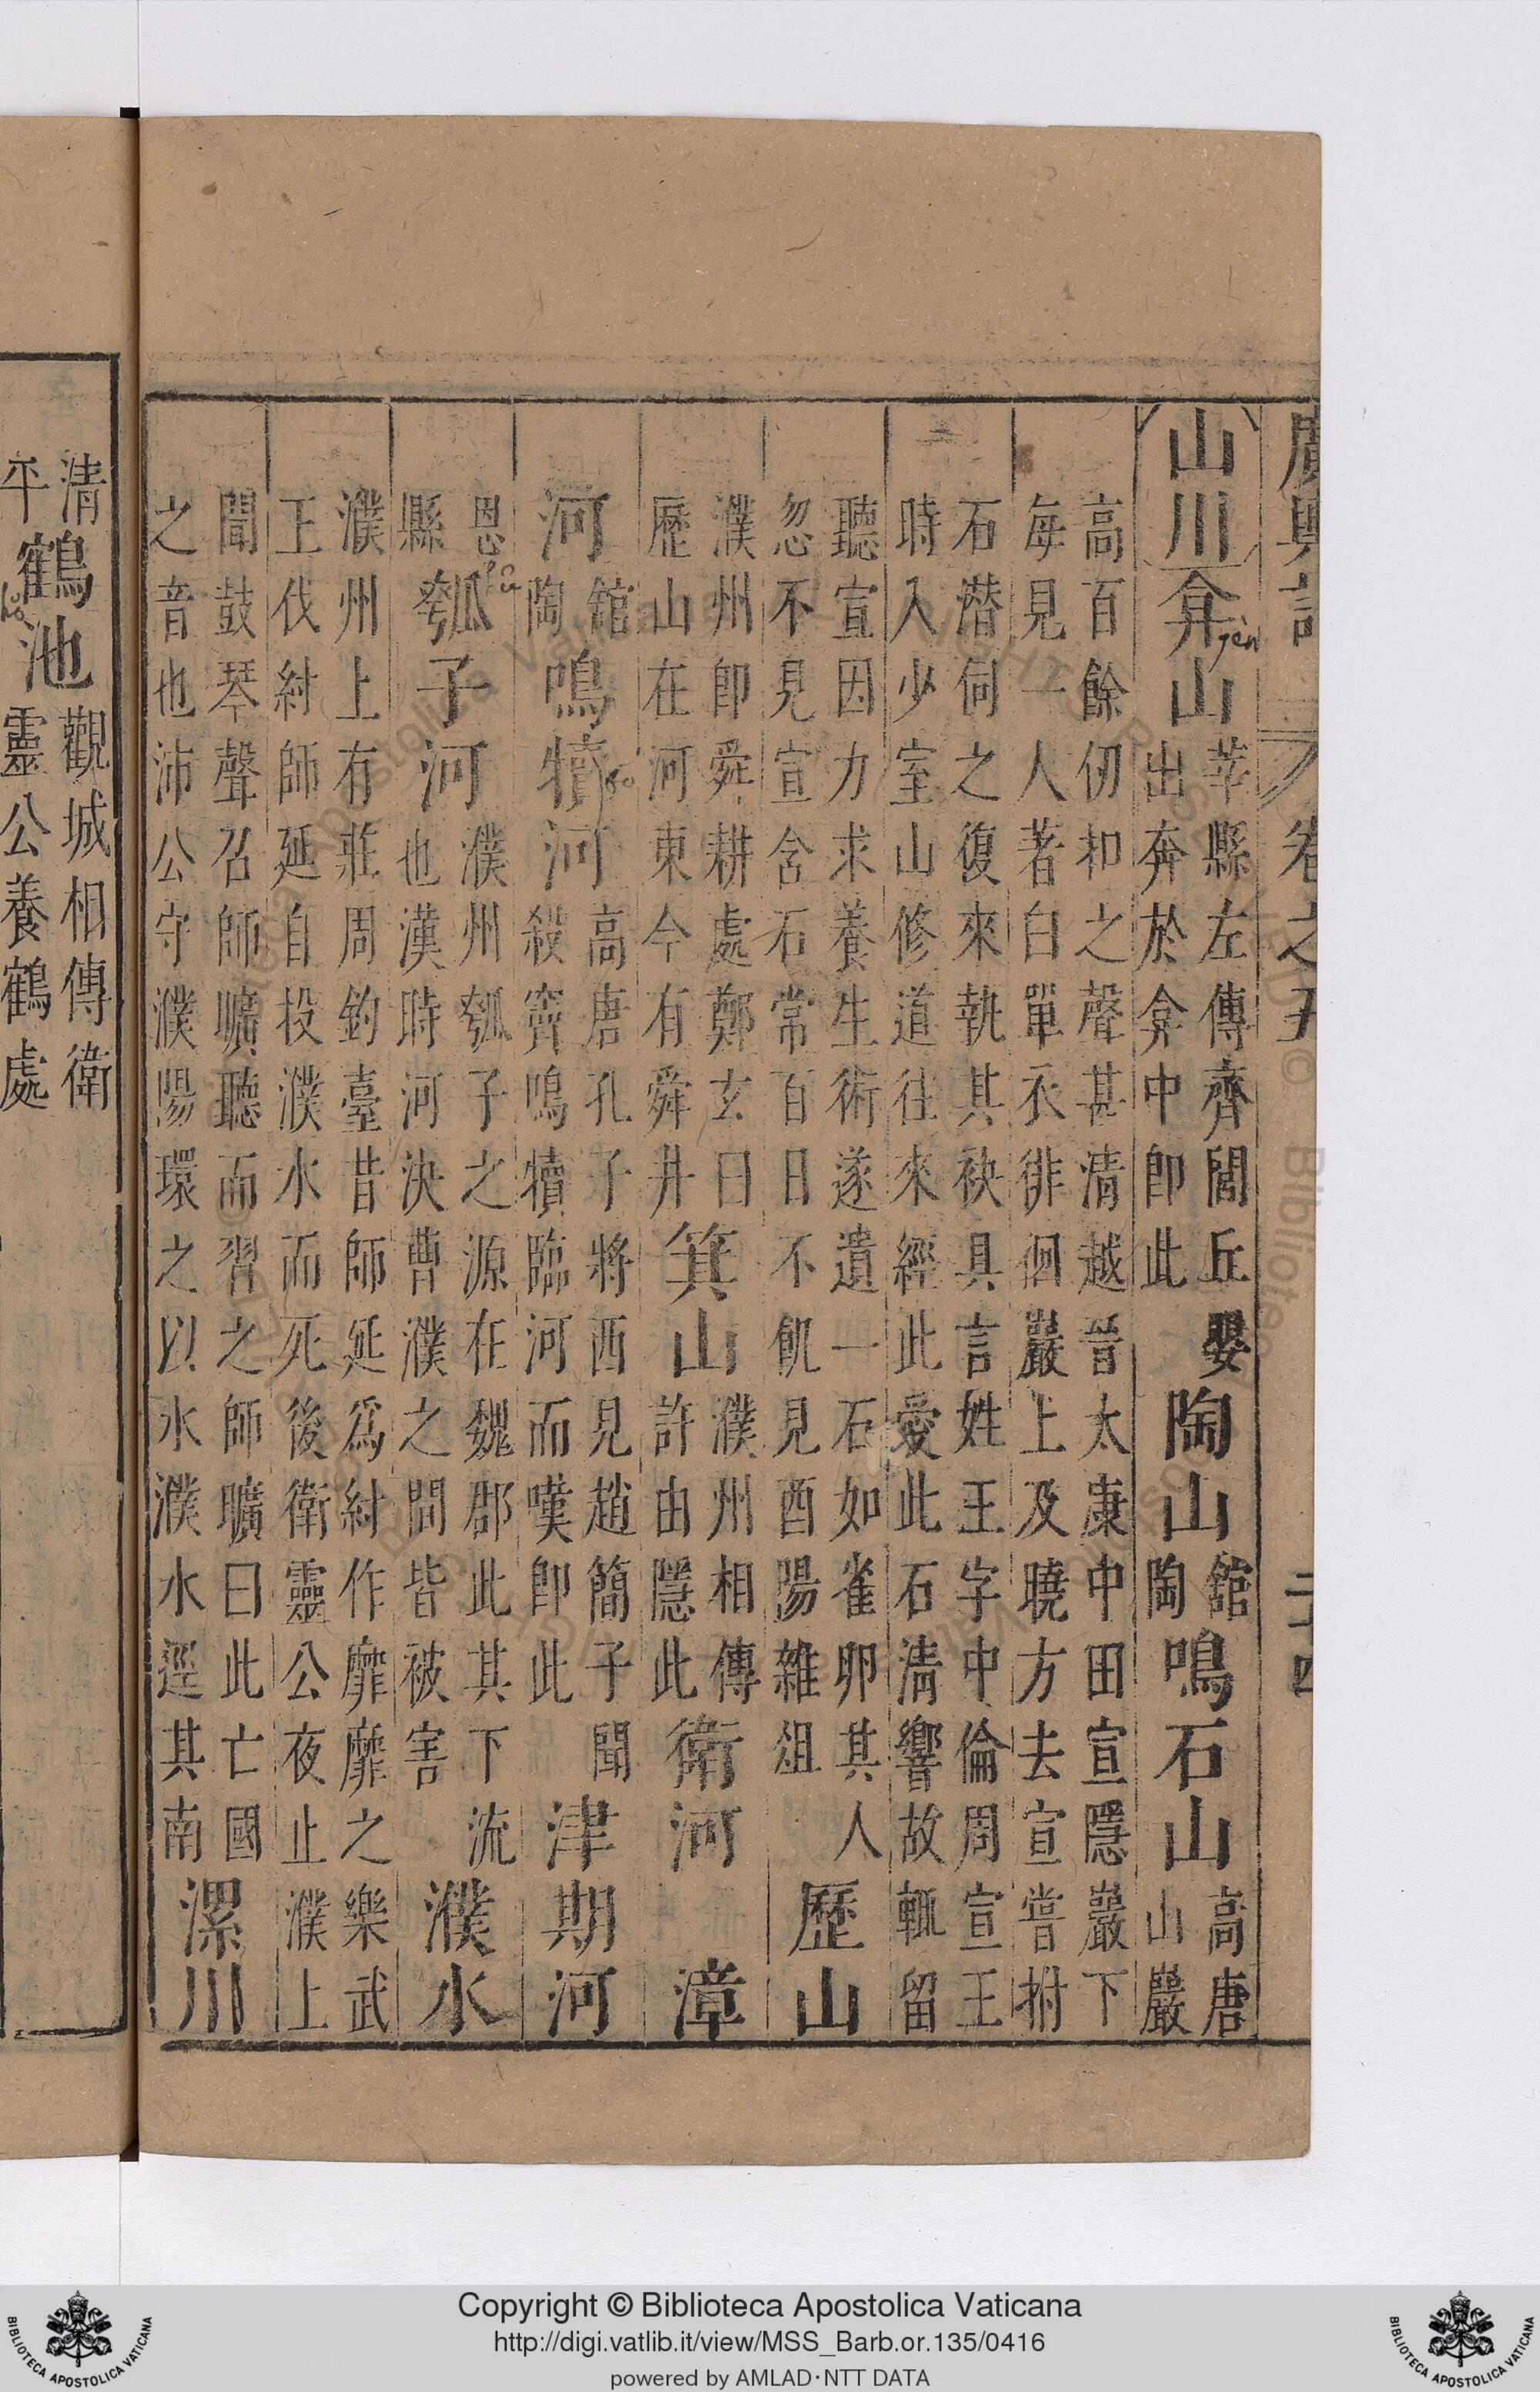 廣輿記 卷之五 二十四
山川 弇山 莘縣左傳齊閭丘嬰出奔於弇中即此 陶山 館陶 鳴石山 高唐山巖
高百餘仞扣之聲甚清越晉太康中田宣隱巖下
每見一人著白單衣徘徊巖上及曉方去宣嘗拊
石潛伺之復來執其袂具言姓王字中倫周宣王
時入少室山修道往來經此愛此石清響故輒留
聽宣因力求養生術遂遺一石如雀卵其人
忽不見宣舍石常百日不飢見酉陽雜俎 歷山
濮州即舜耕處鄭玄曰歷山在河東今有舜井 箕山 濮州相傳許由隱此 衛河 漳
河 館陶 鳴犢河 高唐孔子將西見趙簡子聞殺竇鳴犢臨河而嘆即此 津期河
恩縣 瓠子河 濮州瓠子之源在魏郡此其下流也漢時河決曹濮之間皆被害 濮水
濮州上有莊周釣臺昔師延爲紂作靡靡之樂武
王伐紂師延自投濮水而死後衛靈公夜止濮上
聞鼓琴聲召師曠聽而習之師曠曰此亡國
之音也沛公守濮陽環之以水濮水逕其南 漯川
清平 鶴池 觀城相傳衛靈公養鶴處
yèn
Copyright © Biblioteca Apostolica Vaticana
http://digi.vatlib.it/view/MSS_Barb.or.135/0416
powered by AMLAD·NTT DATA
BIBLIOTECA APOSTOLICA VATICANA
BIBLIOTECA APOSTOLICA VATICANA